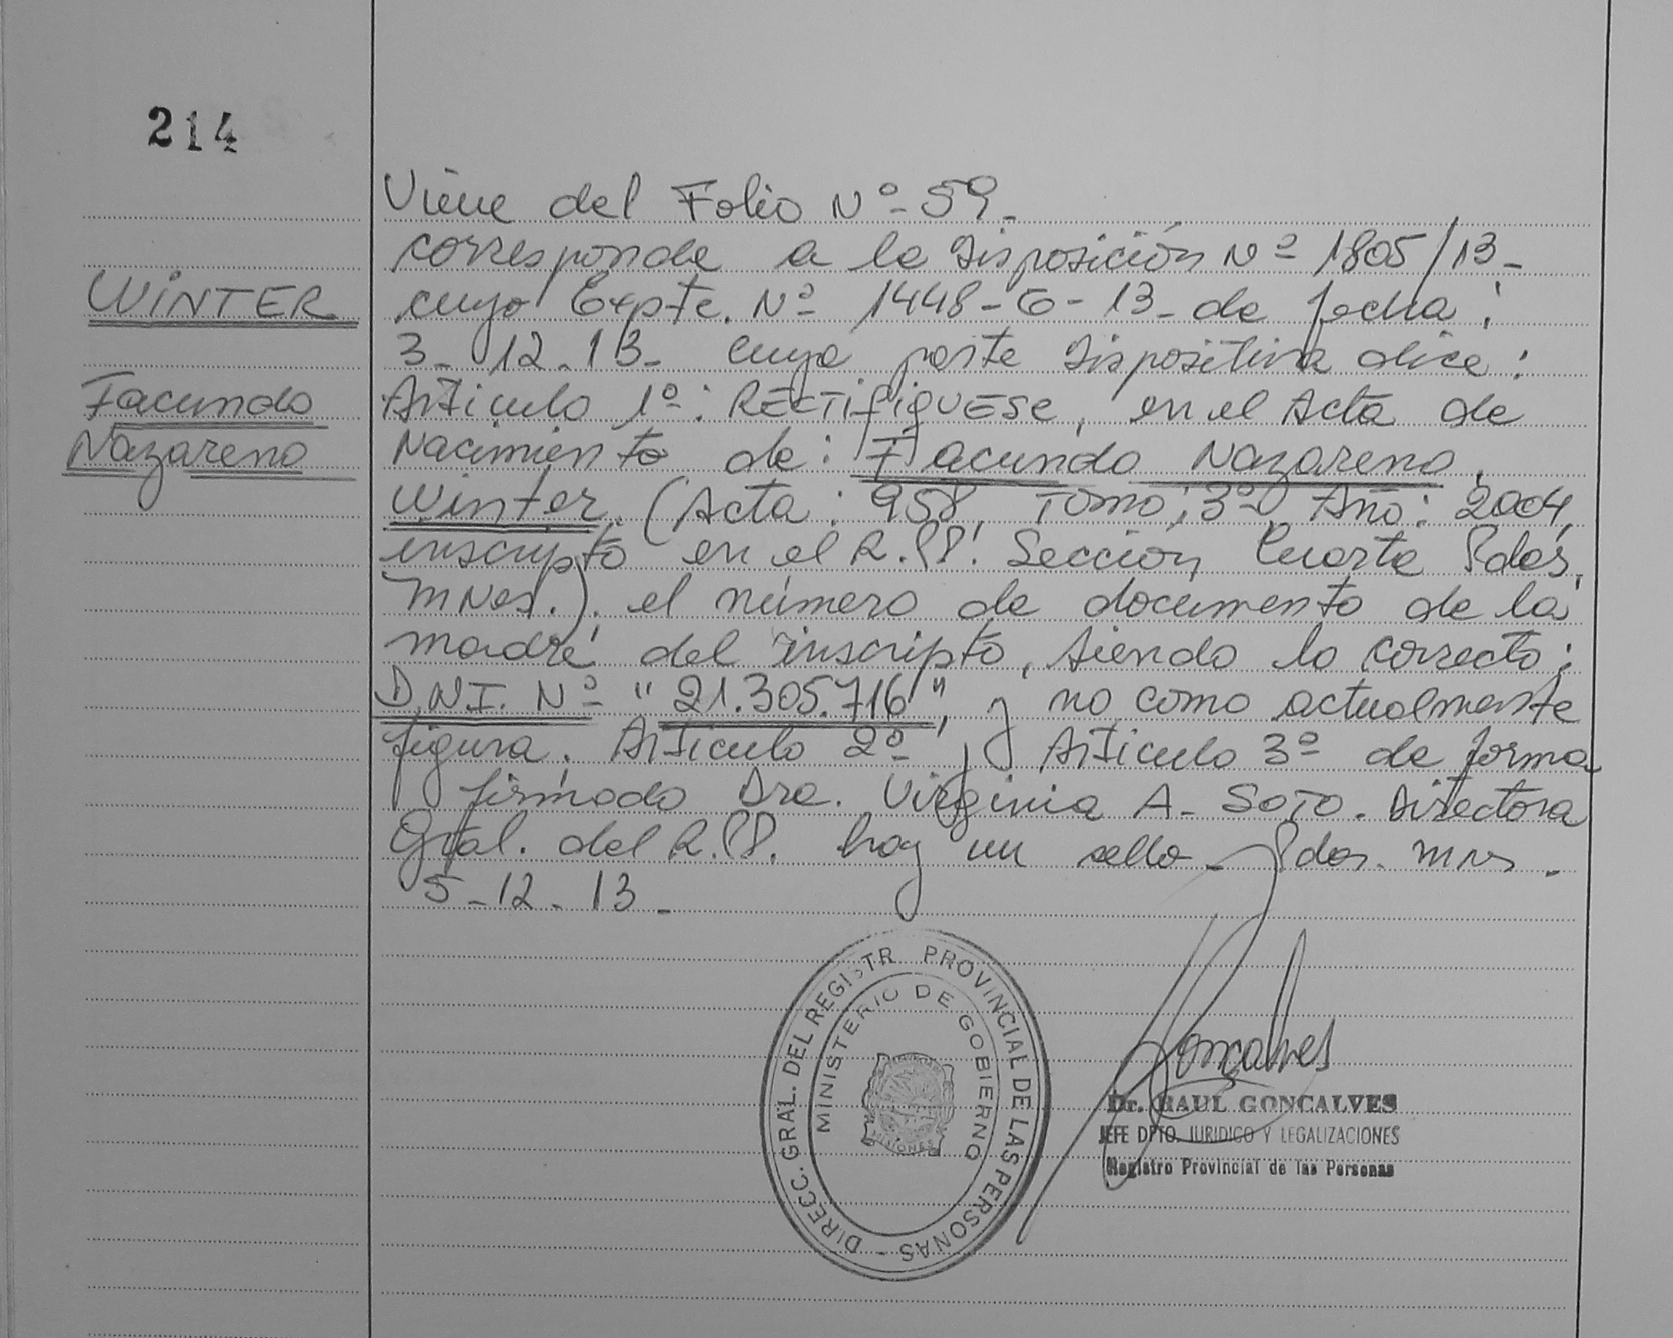 214
WINTER
Facundo
Nazareno
Viene del Folio Nº-59-
corresponde a la Disposición Nº 1805/13-
cuyo Expte. Nº 1448-G-13- de fecha:
3-12-13- cuya parte Dispositiva dice:
Artículo 1º: RECTIFIQUESE, en el Acta de
Nacimiento de: Facundo Nazareno
Winter. (Acta: 958, Tomo: 3º Año: 2004,
inscripto en el R.PP. Sección Cuarta Pdas,
MNes.). el número de documento de la
madre del inscripto, siendo lo correcto:
D.N.I. Nº "21.305.716", y no como actualmente
figura. Artículo 2º y Artículo 3º de forma
firmado Dra. Virginia A. SOTO. Directora
Gral. del R.PP. hay un sello - Pdas. MNs.
5-12-13-
DIRECC. GRAL. DEL REGISTR PROVINCIAL DE LAS PERSONAS -
MINISTERIO DE GOBIERNO
MISIONES
Goncalves
Dr. RAUL GONCALVES
JEFE DPTO. JURIDICO Y LEGALIZACIONES
Registro Provincial de las Personas